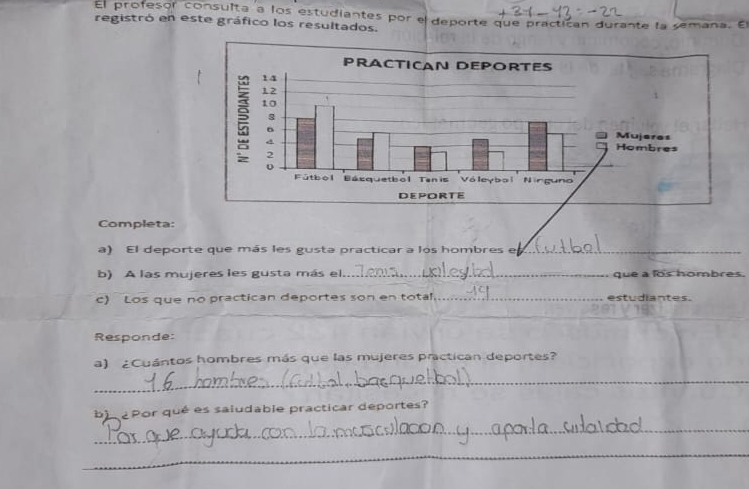 El profesor consulta a los estudiantes por el deporte que practican durante la semana. E
registró en este gráfico los resultados.
PRACTICAN DEPORTES
N° DE ESTUDIANTES
14
12
10
8
6
4
2
0
Fútbol Básquetbol Tenis Vóleybol Ninguno
DEPORTE
Mujeres
Hombres
Completa:
a) El deporte que más les gusta practicar a los hombres e futbol
b) A las mujeres les gusta más el Tenis voleybol que a los hombres.
c) Los que no practican deportes son en total 19 estudiantes.
Responde:
a) ¿Cuántos hombres más que las mujeres practican deportes?
16 hombres (futbol, basquetbol)
b) ¿Por qué es saludable practicar deportes?
Por que ayuda con la musculacion y aporta vitalidad